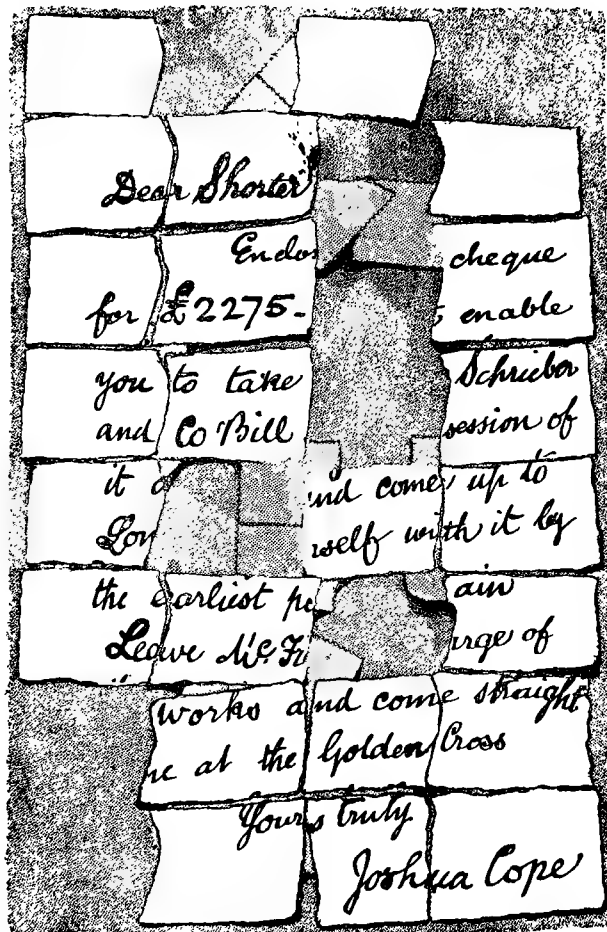 Dear Shorter
Endos cheque
for £2275- enable
you to take Schrieber
and Co Bill session of
it and come up to
Lon rself with it by
the earliest ain
Leave Mc. Fr arge of
works and come straight
at the Golden Cross
Yours truly
Joshua Cope